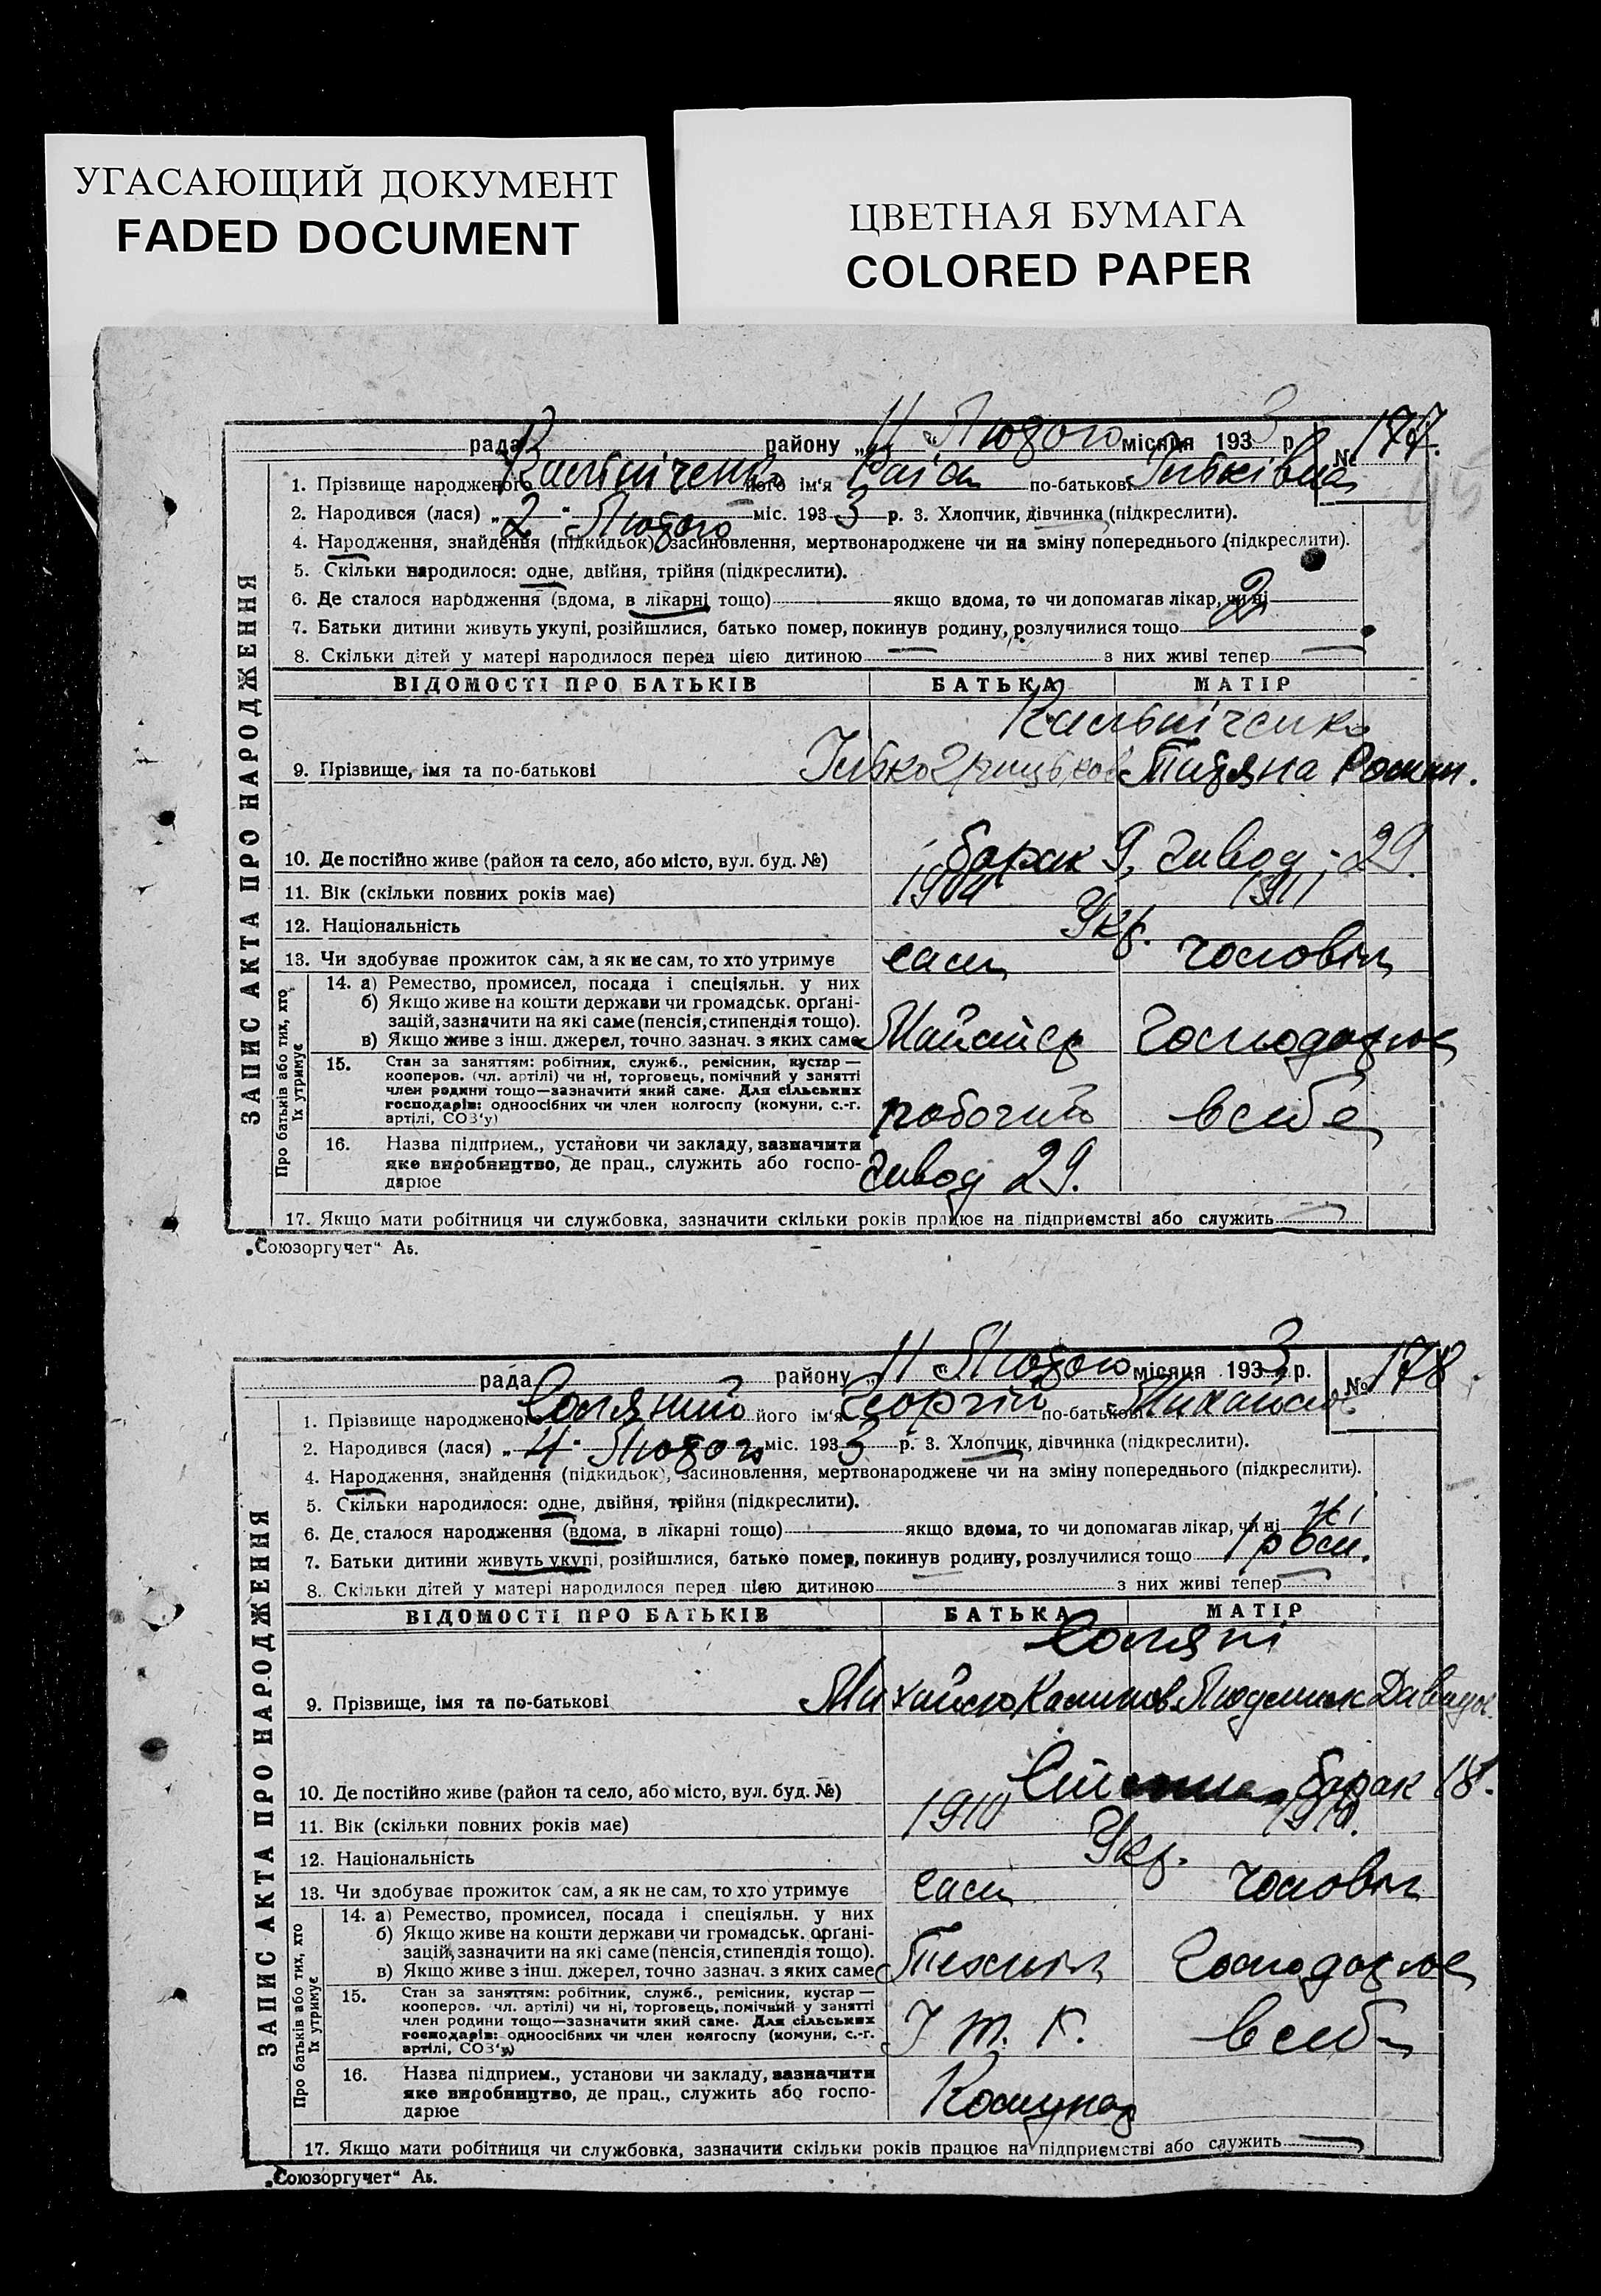 УГАСАЮЩИЙ ДОКУМЕНТ
FADED DOCUMENT
ЦВЕТНАЯ БУМАГА
COLORED PAPER
ЗАПИС АКТА ПРО НАРОДЖЕННЯ
рада району „11“ Лютого місяця 1933 р. № 177.
1. Прізвище народженого його ім'я Раіса по-батькові Ільківна
2. Народився (лася) „2“ Лютого міс. 1933 р. 3. Хлопчик, дівчинка (підкреслити).
4. Народження, знайдення (підкидьок), засиновлення, мертвонароджене чи на зміну попереднього (підкреслити).
5. Скільки народилося: одне, двійня, трійня (підкреслити).
6. Де сталося народження (вдома, в лікарні тощо) якщо вдома, то чи допомагав лікар, чи ні
7. Батьки дитини живуть укупі, розійшлися, батько помер, покинув родину, розлучилися тощо 2
8. Скільки дітей у матері народилося перед цією дитиною — з них живі тепер —
ВІДОМОСТІ ПРО БАТЬКІВ БАТЬКА МАТІР
9. Прізвище, імя та по-батькові Ілько Грицьков Титяна Роман.
10. Де постійно живе (район та село, або місто, вул. буд. №) барак 9, завод - 29.
11. Вік (скільки повних років має) 1904 1911
12. Національність Укр.
13. Чи здобуває прожиток сам, а як не сам, то хто утримує сам чоловік
Про батьків або тих, хто їх утримує
14. а) Ремество, промисел, посада і спеціяльн. у них
б) Якщо живе на кошти держави чи громадськ. орґані-
зацій, зазначити на які саме (пенсія, стипендія тощо).
в) Якщо живе з інш. джерел, точно зазнач. з яких саме Майстер Господарює
15. Стан за заняттям: робітник, служб., ремісник, кустар —
кооперов. (чл. артілі) чи ні, торговець, помічний у занятті
член родини тощо—зазначити який саме. Для сільських
господарів: одноосібних чи член колгоспу (комуни, с.-г.
артілі, СОЗ'у) робочий в себе
16. Назва підприєм., установи чи закладу, зазначити
яке виробництво, де прац., служить або госпо-
дарює завод 29.
17. Якщо мати робітниця чи службовка, зазначити скільки років працює на підприємстві або служить —
„Союзоргучет“ Аь.
ЗАПИС АКТА ПРО НАРОДЖЕННЯ
рада району „11“ Лютого місяця 1933 р. № 178.
1. Прізвище народженого Соляний його ім'я Георгій по-батькові Михайлов
2. Народився (лася) „4“ Лютого міс. 1933 р. 3. Хлопчик, дівчинка (підкреслити).
4. Народження, знайдення (підкидьок), засиновлення, мертвонароджене чи на зміну попереднього (підкреслити).
5. Скільки народилося: одне, двійня, трійня (підкреслити).
6. Де сталося народження (вдома, в лікарні тощо) якщо вдома, то чи допомагав лікар, чи ні ні
7. Батьки дитини живуть укупі, розійшлися, батько помер, покинув родину, розлучилися тощо 1
8. Скільки дітей у матері народилося перед цією дитиною — з них живі тепер —
ВІДОМОСТІ ПРО БАТЬКІВ БАТЬКА МАТІР
Соляні
9. Прізвище, імя та по-батькові Михайло Калинов Людмила Давидов.
10. Де постійно живе (район та село, або місто, вул. буд. №) барак 18.
11. Вік (скільки повних років має) 1910 1910.
12. Національність Укр.
13. Чи здобуває прожиток сам, а як не сам, то хто утримує сам чоловік
Про батьків або тих, хто їх утримує
14. а) Ремество, промисел, посада і спеціяльн. у них
б) Якщо живе на кошти держави чи громадськ. орґані-
зацій, зазначити на які саме (пенсія, стипендія тощо).
в) Якщо живе з інш. джерел, точно зазнач. з яких саме Технік Господарює
15. Стан за заняттям: робітник, служб., ремісник, кустар —
кооперов. чл. артілі) чи ні, торговець, помічний у занятті
член родини тощо—зазначити який саме. Для сільських
господарів: одноосібних чи член колгоспу (комуни, с.-г.
артілі, СОЗ'у) І. т. р. в себе
16. Назва підприєм., установи чи закладу, зазначити
яке виробництво, де прац., служить або госпо-
дарює Комунар
17. Якщо мати робітниця чи службовка, зазначити скільки років працює на підприємстві або служить —
„Союзоргучет“ Аь.